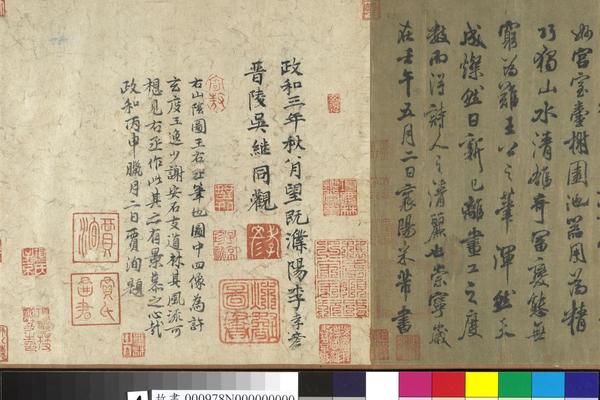 宮室臺榭園池器用為精
巧獨山水清雄奇富變態無
窮為難王公之筆渾然天
成燦然日新已離畫工之度
數而得詩人之清麗也崇寧歲
在壬午五月二日襄陽米芾書
政和三年秋八月望既濼陽李孝彥
晉陵吳継同觀
右山陰圖王右丞筆也圖中四像為許
玄度王逸少謝安石支道林其風流可
想見右丞作此其亦有景慕之心哉
政和丙申臘月二日賈洵題
賈洵
故畫 000978N000000000